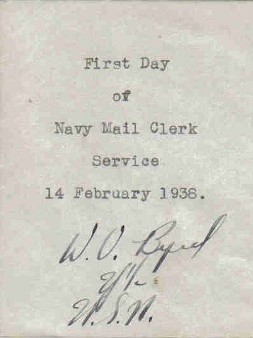 First Day
of
Navy Mail Clerk
Service
14 February 1938.
W. O. Byrd
U.S.N.